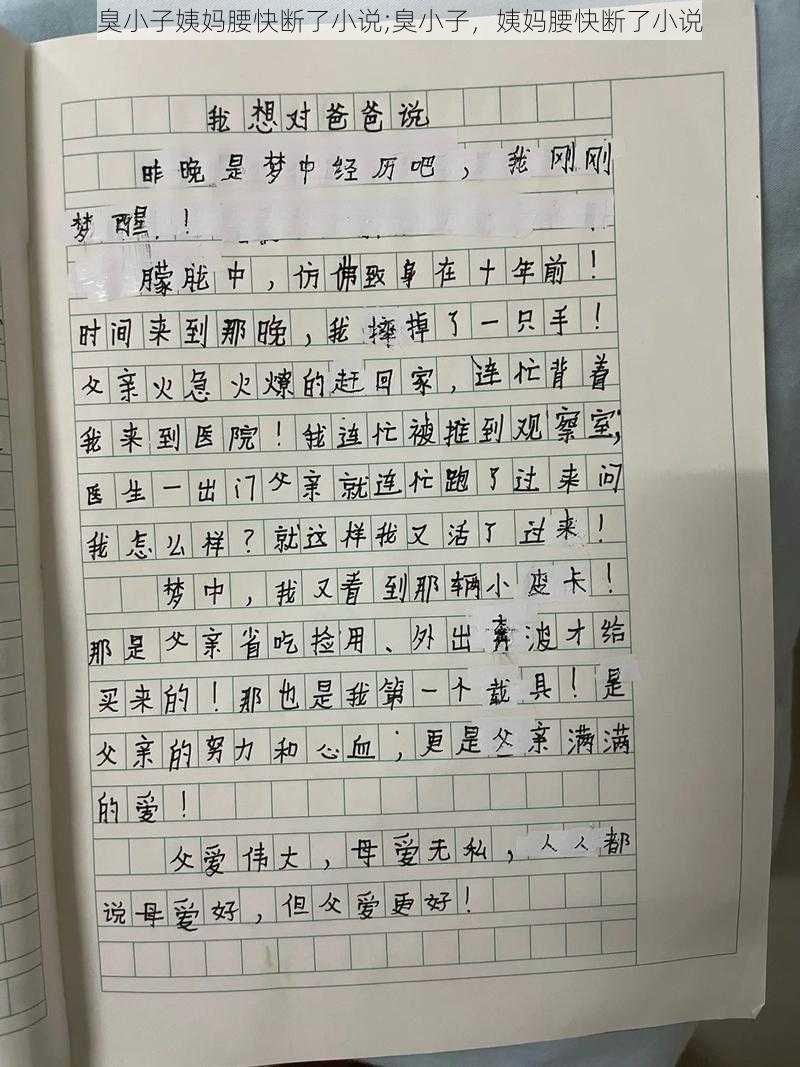 臭小子姨妈腰快断了小说;臭小子，姨妈腰快断了小说
我想对爸爸说
昨晚是梦中经历吧，我刚刚
梦醒！
朦胧中，仿佛致身在十年前！
时间来到那晚，我摔掉了一只手！
父亲火急火燎的赶回家，连忙背着
我来到医院！我连忙被推到观察室；
医生一出门父亲就连忙跑了过来问
我怎么样？就这样我又活了过来！
梦中，我又看到那辆小皮卡！
那是父亲省吃捡用、外出奔波才给
买来的！那也是我第一个载具！是
父亲的努力和心血；更是父亲满满
的爱！
父爱伟大，母爱无私，人人都
说母爱好，但父爱更好！